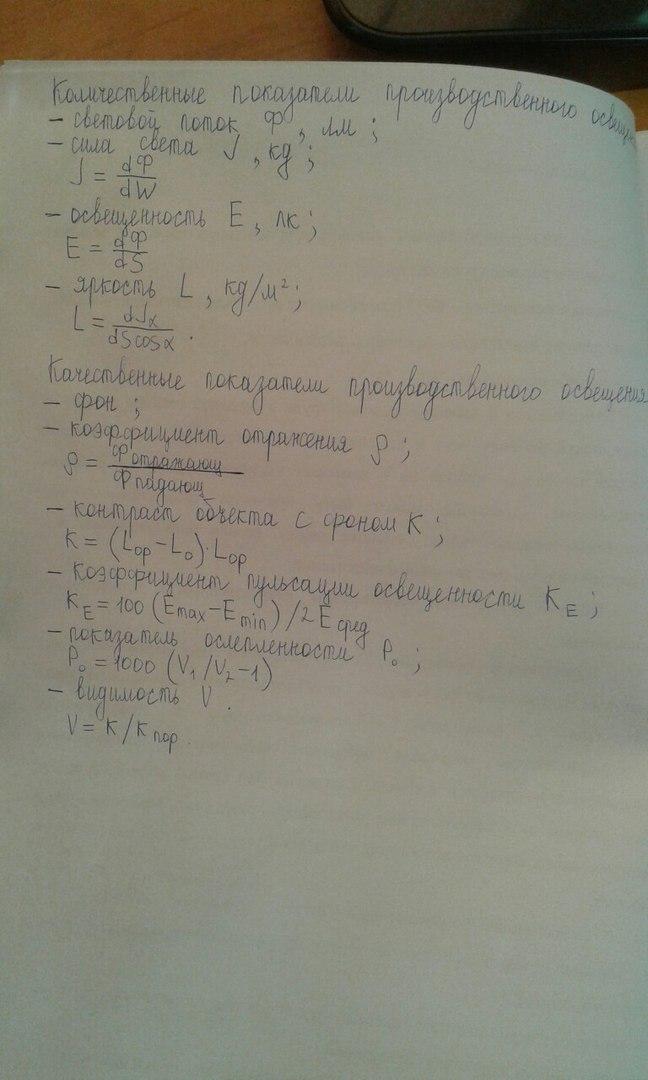 Количественные показатели производственного освещен
– световой поток Ф, лм;
– сила света J, кд;
J = dФ/dW
– освещенность E, лк;
E = dФ/dS
– яркость L, кд/м²;
L = dJα/dS cosα.
Качественные показатели производственного освещения
– фон;
– коэффициент отражения ρ;
ρ = Ф отражающ/Ф падающ
– контраст объекта с фоном K;
K = (Lор – Lо)·Lор
– коэффициент пульсации освещенности KE;
KE = 100 (Emax – Emin) / 2 E сред
– показатель ослепленности Pо;
Pо = 1000 (V1 / V2 – 1)
– видимость V.
V = K / K пор.